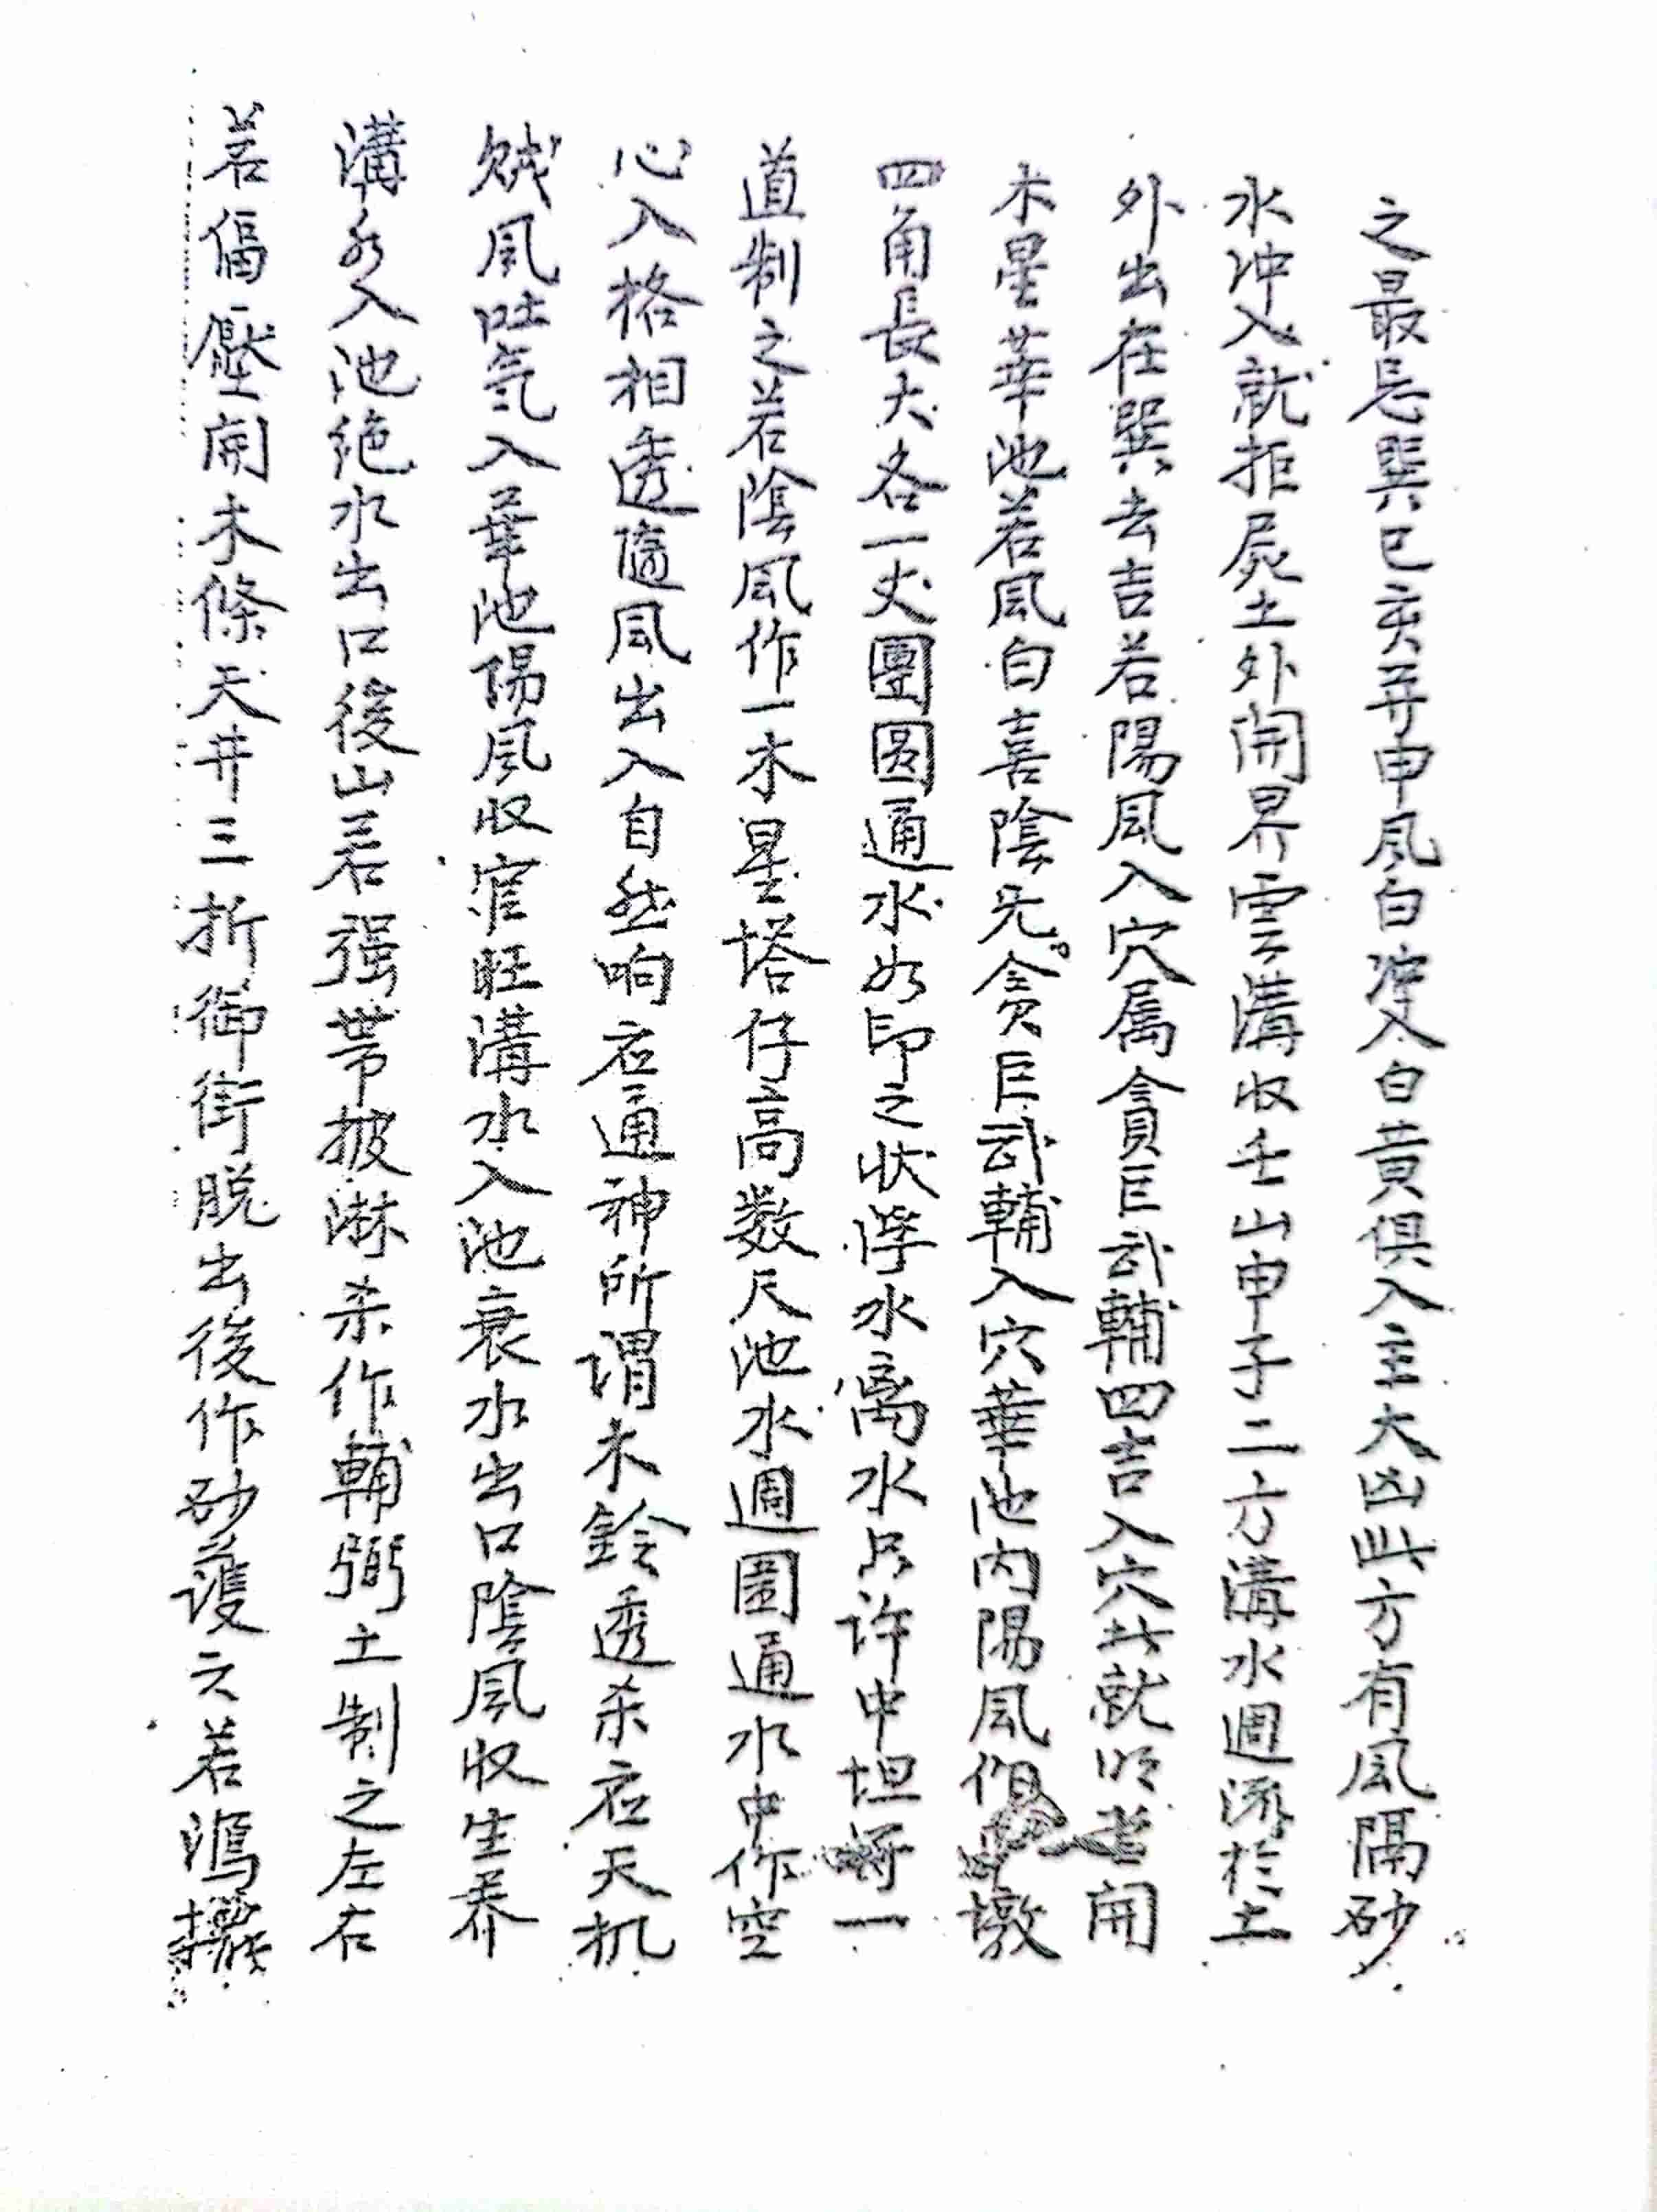 之最忌巽巳亥弄申風白沖入白黄俱入主大凶此方有風隔砂
水冲入就拒屍土外開界雲溝收壬山申子二方溝水週流於土
外出在巽去吉若陽風入穴属貪巨武輔四吉入穴此就明堂開
木星華池若風白喜陰先貪巨武輔入穴華池内陽風作墩
四角長大各一丈團圆通水如印之状浮水离水只许中坦一
道制之若陰風作一木星塔仔高数尺池水週圍通水中作空
心入格相透随風出入自然响应通神所谓木鈴透杀应天机
賊風吐氣入華池陽風收官旺溝水入池衰水出口陰風收生养
溝水入池绝水出口後山若强帶披淋杀作輔弼土制之左右
若偪壓開木條天井三折御街脱出後作砂護之若瀉